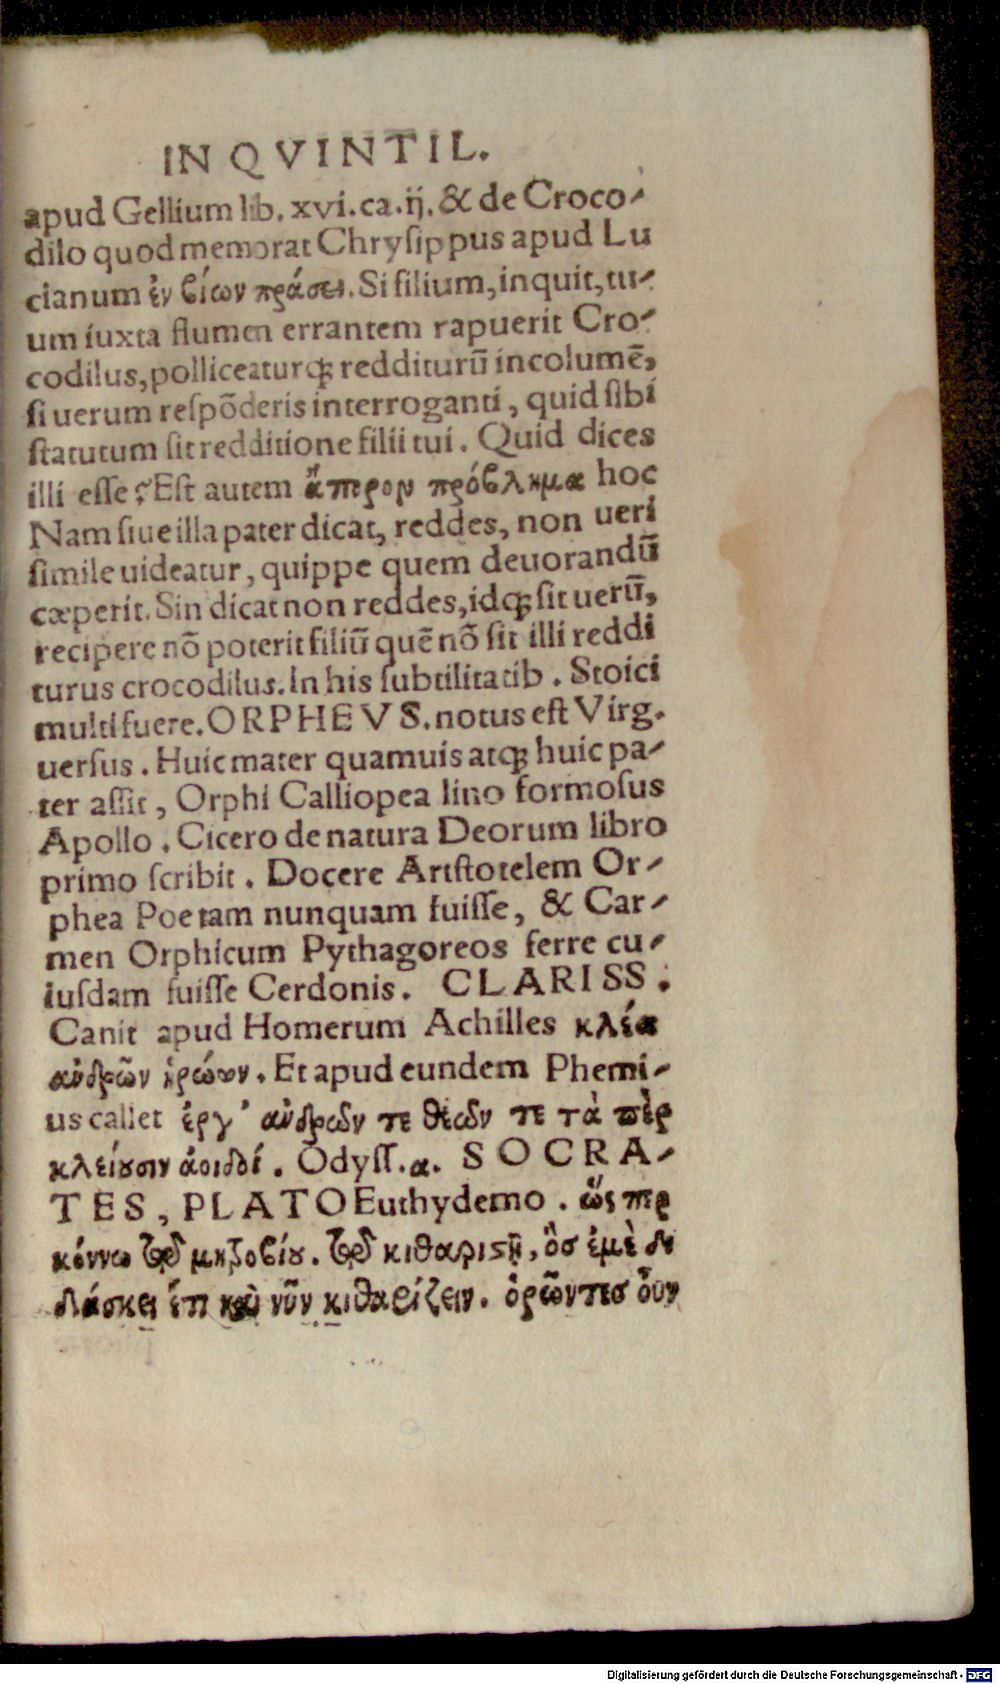 IN QVINTIL.
apud Gellium lib. xvi. ca. ij. & de Croco-
dilo quod memorat Chrysippus apud Lu
cianum ἐν βίων πράσει. Si filium, inquit, tu-
um iuxta flumen errantem rapuerit Cro-
codilus, polliceaturꝗ; redditurũ incolumẽ,
si uerum respõderis interroganti, quid sibi
statutum sit redditione filii tui. Quid dices
illi esse? Est autem ἄπορον πρόβλημα hoc
Nam siue illa pater dicat, reddes, non ueri
simile uideatur, quippe quem deuorandũ
cæperit. Sin dicat non reddes, idꝗ; sit uerũ,
recipere nõ poterit filiũ quẽ nõ sit illi reddi
turus crocodilus. In his subtilitatib. Stoici
multi fuere. ORPHEVS. notus est Virg.
uersus. Huic mater quamuis atꝗ; huic pa-
ter assit, Orphi Calliopea lino formosus
Apollo. Cicero de natura Deorum libro
primo scribit. Docere Aristotelem Or-
phea Poetam nunquam fuisse, & Car-
men Orphicum Pythagoreos ferre cu-
iusdam fuisse Cerdonis. CLARISS.
Canit apud Homerum Achilles κλέα
ἀνδρῶν ἡρώων. Et apud eundem Phemi-
us callet ἔργ' ἀνδρῶν τε θεῶν τε τὰ πὲρ
κλείουσιν ἀοιδοί. Odyss. α. SOCRA-
TES, PLATO Euthydemo. ὥς περ
κόννω τῷ μητροβίου. τῷ κιθαριστῇ, ὃσ ἐμὲ δι
δάσκει ἔτι καὶ νῦν κιθαρίζειν. ὁρῶντεσ οὖν
Digitalisierung gefördert durch die Deutsche Forschungsgemeinschaft - DFG